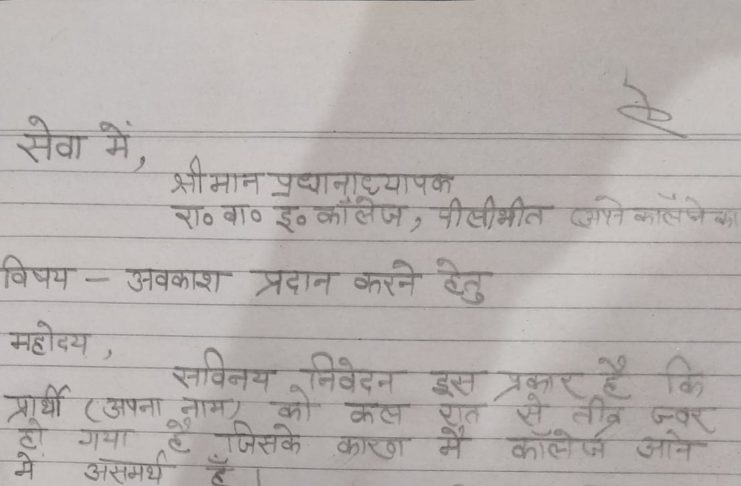 सेवा में,
श्रीमान प्रधानाध्यापक
रा० वा० इ० कॉलेज, पीलीभीत
विषय - अवकाश प्रदान करने हेतु
महोदय,
सविनय निवेदन इस प्रकार है कि
प्रार्थी (अपना नाम) को कल रात से तीव्र ज्वर
हो गया है जिसके कारण मैं कॉलेज आने
में असमर्थ हूँ।